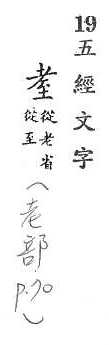 19五經文字
耊從老省從至
(老部
p.70)